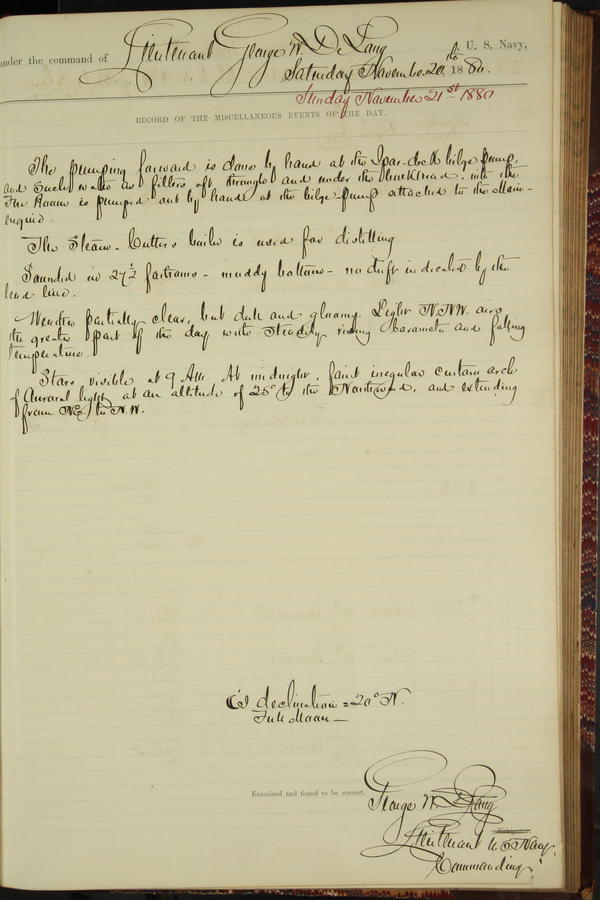 under the command of Lieutenant George W. De Long U. S. Navy,
Saturday November 20th 1880.
Sunday November 21st 1880
RECORD OF THE MISCELLANEOUS EVENTS OF THE DAY.
The pumping forward is done by hand at the Spar-deck bilge pump,
and such water as filters aft through and under the bulkhead, into the
Fire Room is pumped out by hand at the bilge pump attached to the Main-
engine.
The Steam-Cutters boiler is used for distilling
Sounded in 27½ fathoms - muddy bottom - no drift indicated by the
lead line.
Weather partially clear, but dull and gloomy. Light N.N.W. airs
the greater part of the day with steadily rising barometer and falling
temperature.
Stars visible at 9 AM. At midnight, faint irregular curtain arch
of Auroral light at an altitude of 25° to the Northward, and extending
from NE. to N.W.
declination = 20° N.
Full Moon —
Examined and found to be correct,
George W. De Long
Navigator.
Lieutenant U.S. Navy,
Commanding.